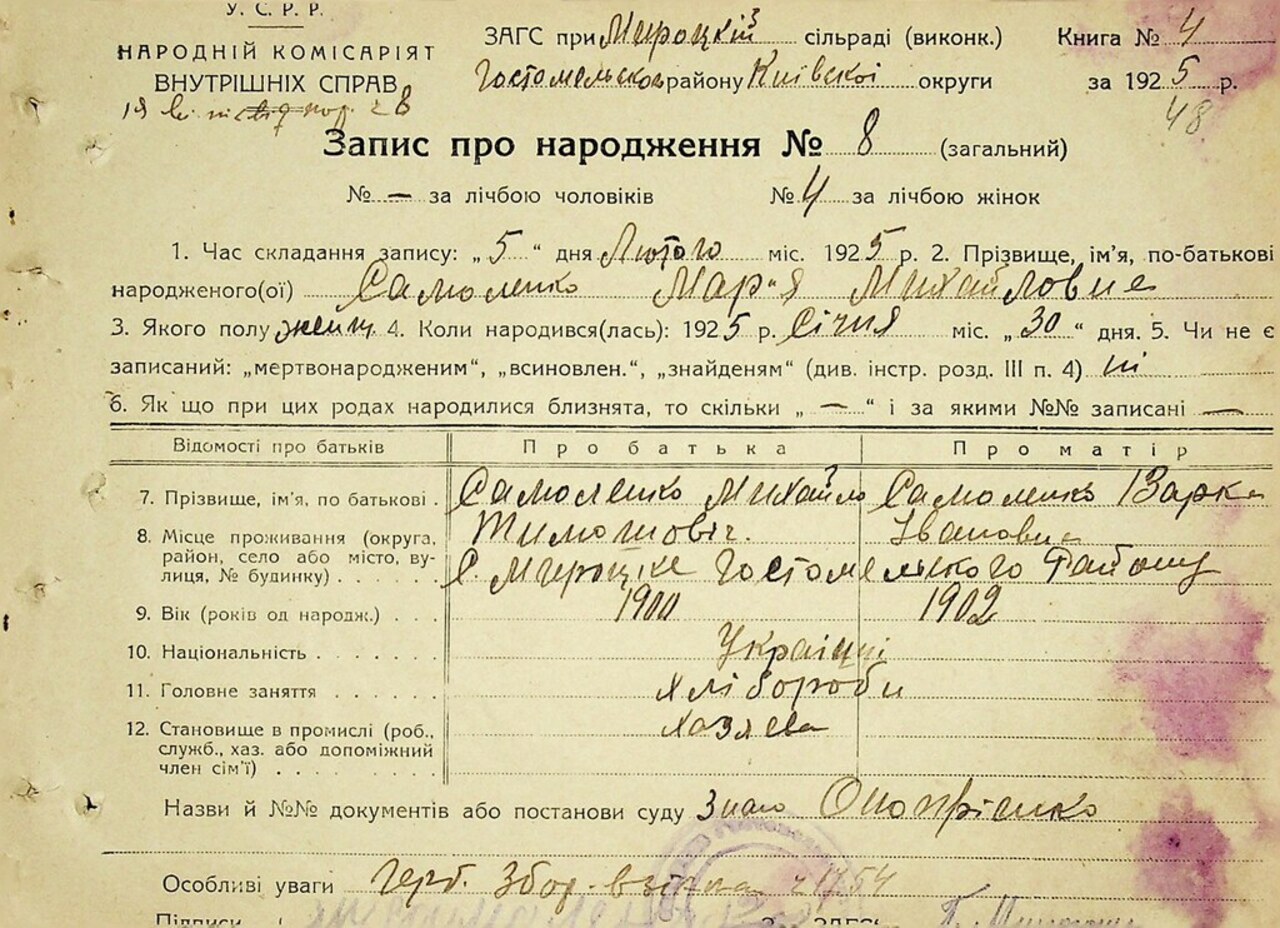 У. С. Р. Р.
НАРОДНІЙ КОМІСАРІЯТ
ВНУТРІШНІХ СПРАВ
ЗАГС при Мироцкій сільраді (виконк.) Книга № 4
Гостомельского району Київскої округи за 1925 р.
48
Запис про народження № 8 (загальний)
№ — за лічбою чоловіків № 4 за лічбою жінок
1. Час складання запису: „5“ дня Лютого міс. 1925 р. 2. Прізвище, ім'я, по-батькові
народженого(ої) Самоленко Мария Михайловна
3. Якого полу женш 4. Коли народився(лась): 1925 р. Січня міс. „30“ дня. 5. Чи не є
записаний: „мертвонародженим“, „всиновлен.“, „знайденям“ (див. інстр. розд. III п. 4) ні
6. Як що при цих родах народилися близнята, то скільки „—“ і за якими №№ записані —
Відомості про батьків Про батька Про матір
7. Прізвище, ім'я, по батькові . Самоленко Михайло Самоленко Варка
8. Місце проживання (округа, Тимошовіч. Івановна
район, село або місто, ву-
лиця, № будинку) . . . . С. Мироцке Гостомельского Району
9. Вік (років од народж.) . . . 1900 1902
10. Національність . . . . . . Українці
11. Головне заняття . . . . . . хлібороби
12. Становище в промислі (роб., хозяева
служб., хаз. або допоміжний
член сім'ї) . . . . . . . .
Назви й №№ документів або постанови суду Знаю Онопрієнко
Особливі уваги Герб. Збор. взято 1754
Підписи ЗАГС